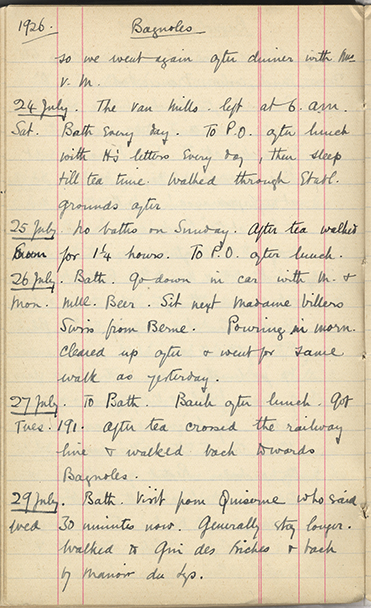 1926. Bagnoles
so we went again after dinner with Mrs
V. M.
24 July. The van Mills left at 6 a.m.
Sat. Bath Every day. To P.O. after lunch
with H's letters Every day, then sleep
till tea time. Walked through Etabl.
grounds after
25 July. No baths on Sunday. After tea walked
for 1¼ hours. To P.O. after lunch.
26 July. Bath. Go down in car with M. &
Mon. Mlle. Beer. Sit next Madame Villers
Swiss from Berne. Pouring in morn.
Cleared up after & went for same
walk as yesterday.
27 July. To Bath. Bank after lunch. Got
Tues. 191. After tea crossed the railway
line & walked back towards
Bagnoles.
29 July. Bath. Visit from Quiserne who said
Wed 30 minutes now. Generally stay longer.
Walked to des & back
by Manoir du Lys.